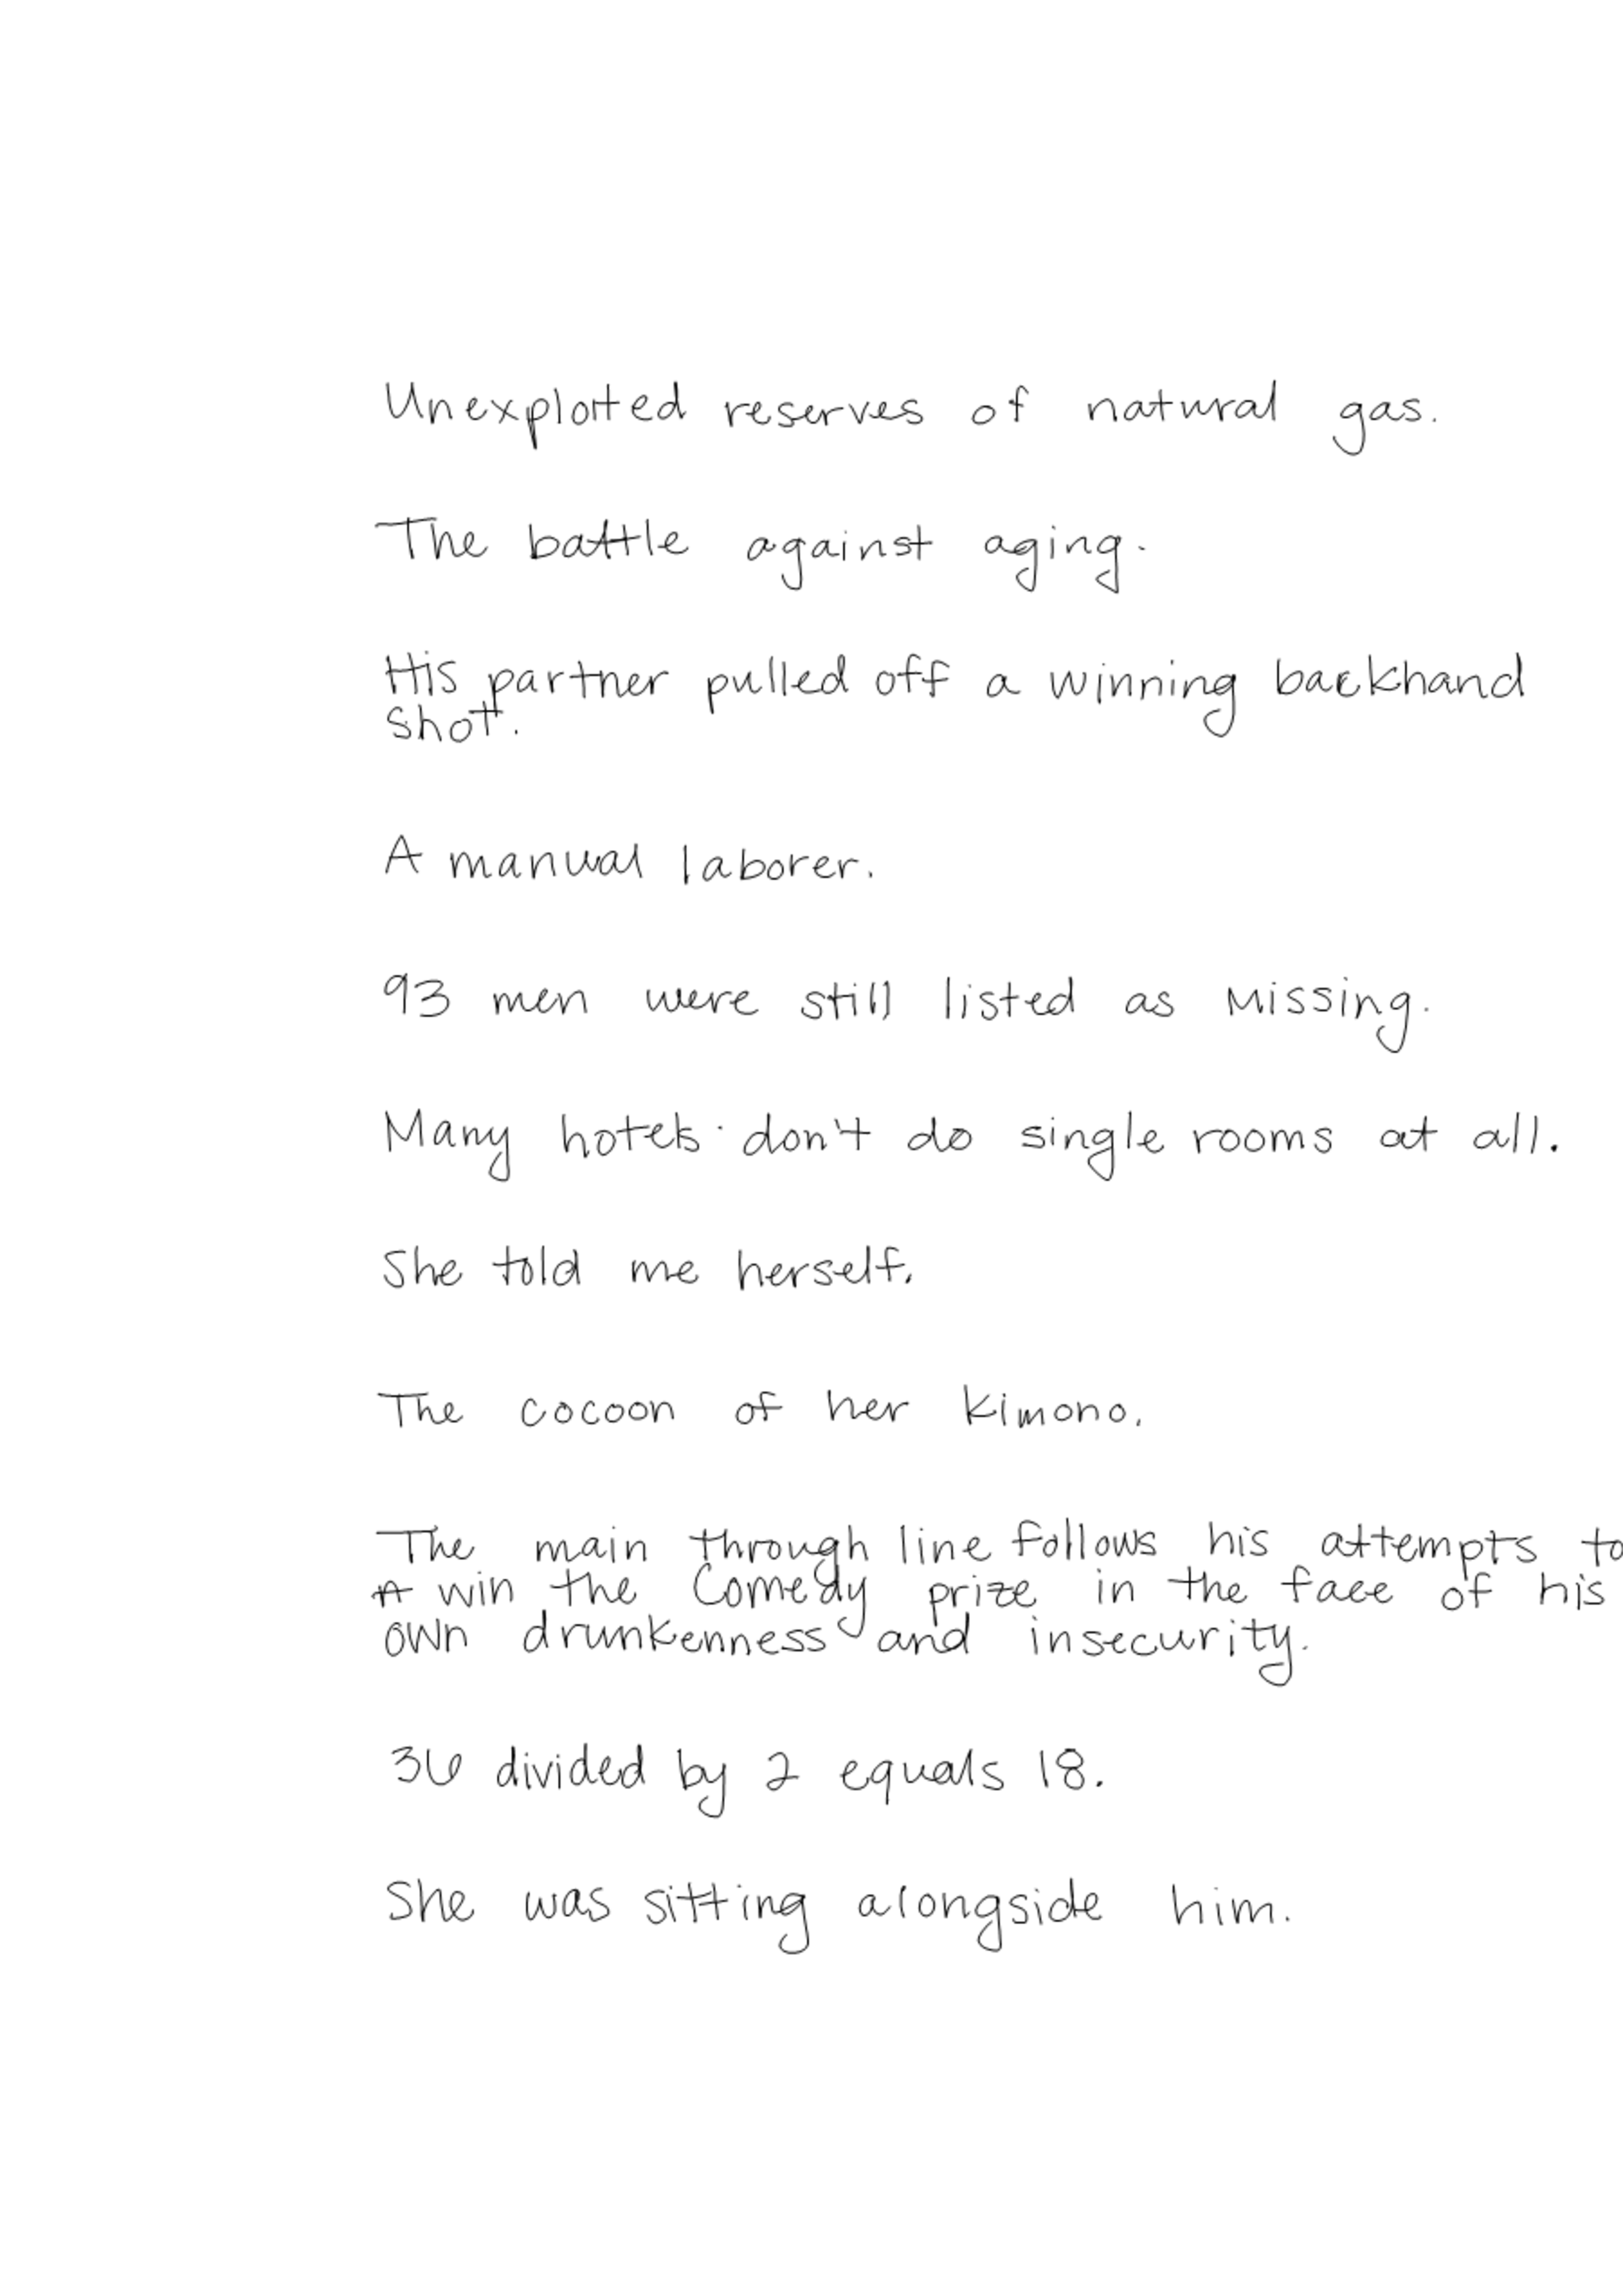 Unexploited reserves of natural gas.
The battle against aging.
His partner pulled off a winning backhand
shot.
A manual laborer.
93 men were still listed as missing.
Many hotels don't do single rooms at all.
She told me herself.
The cocoon of her kimono.
The main through line follows his attempts to
win the Comedy prize in the face of his
own drunkenness and insecurity.
36 divided by 2 equals 18.
She was sitting alongside him.